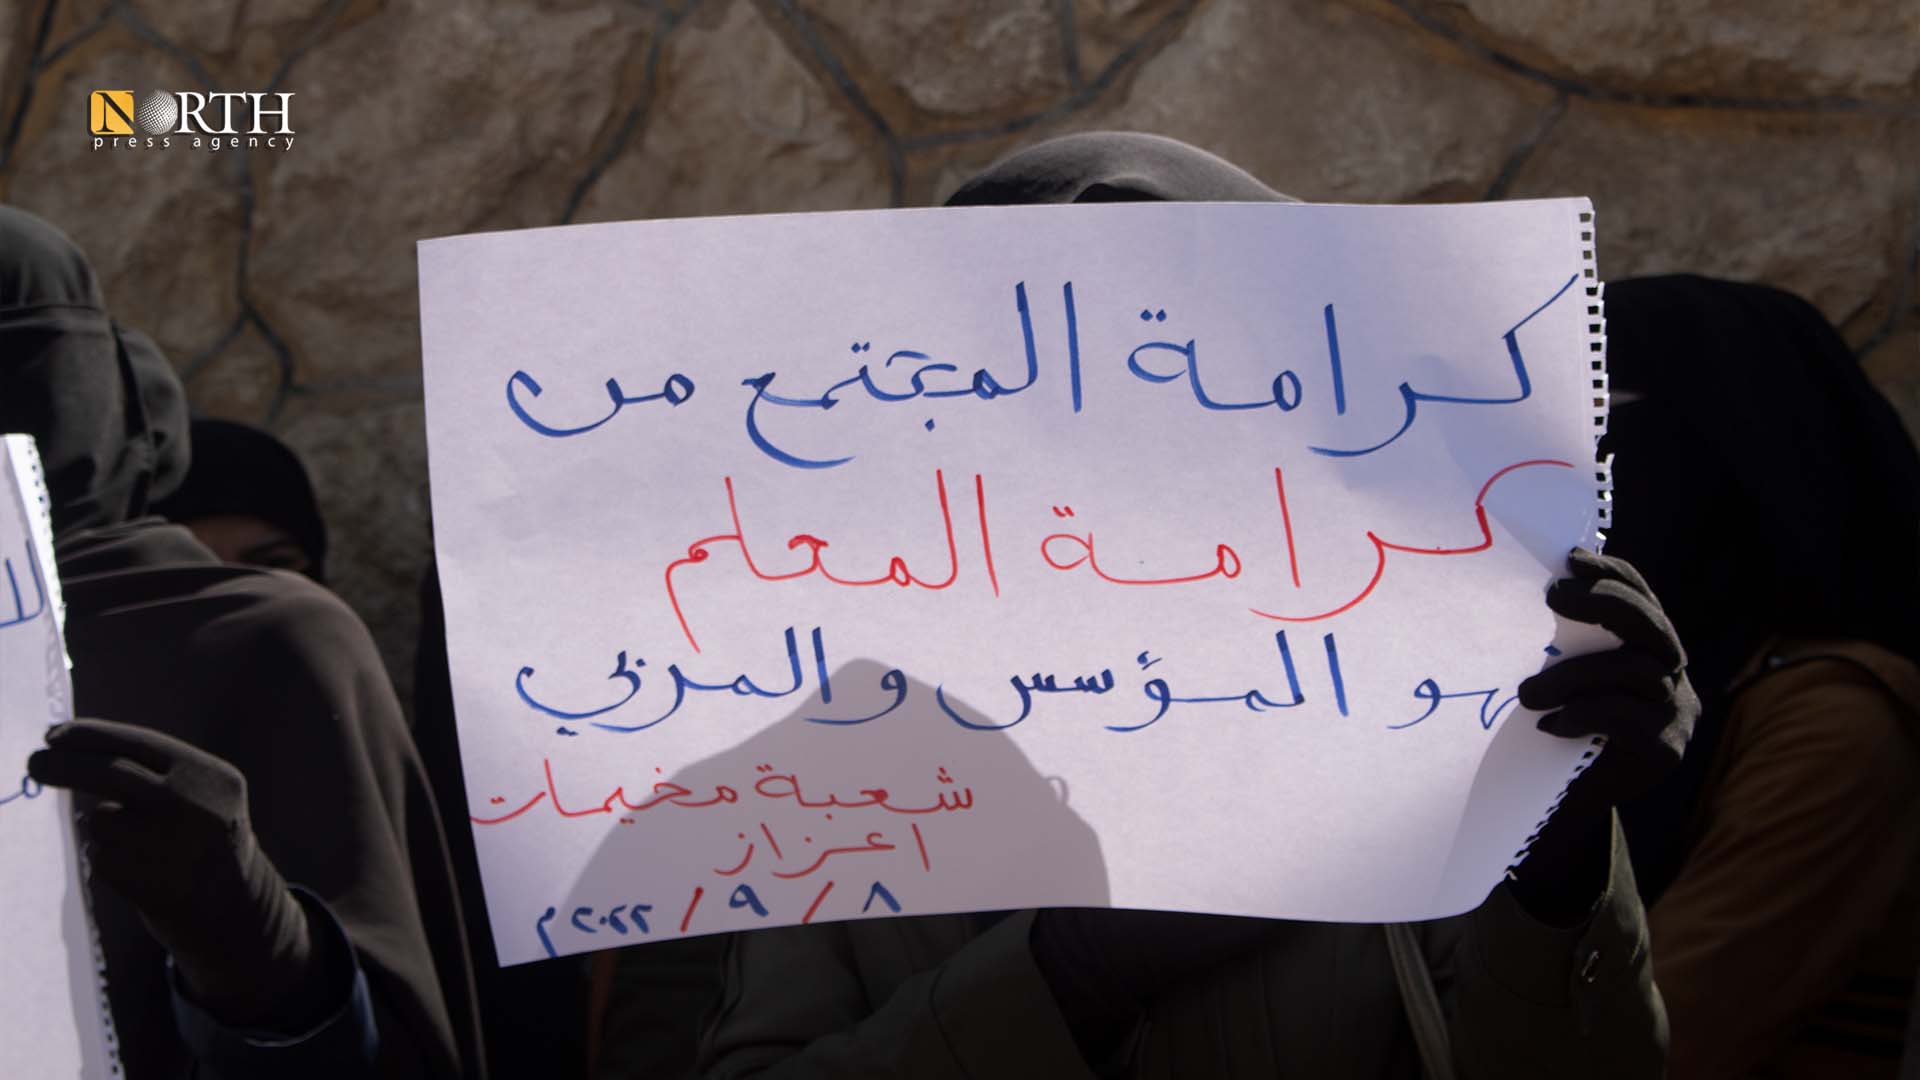 NORTH
press agency
كرامة المجتمع من
كرامة المعلم
فهو المؤسس والمربي
شعبة مخيمات
اعزاز
٨ / ٩ / ٢٠٢٢م